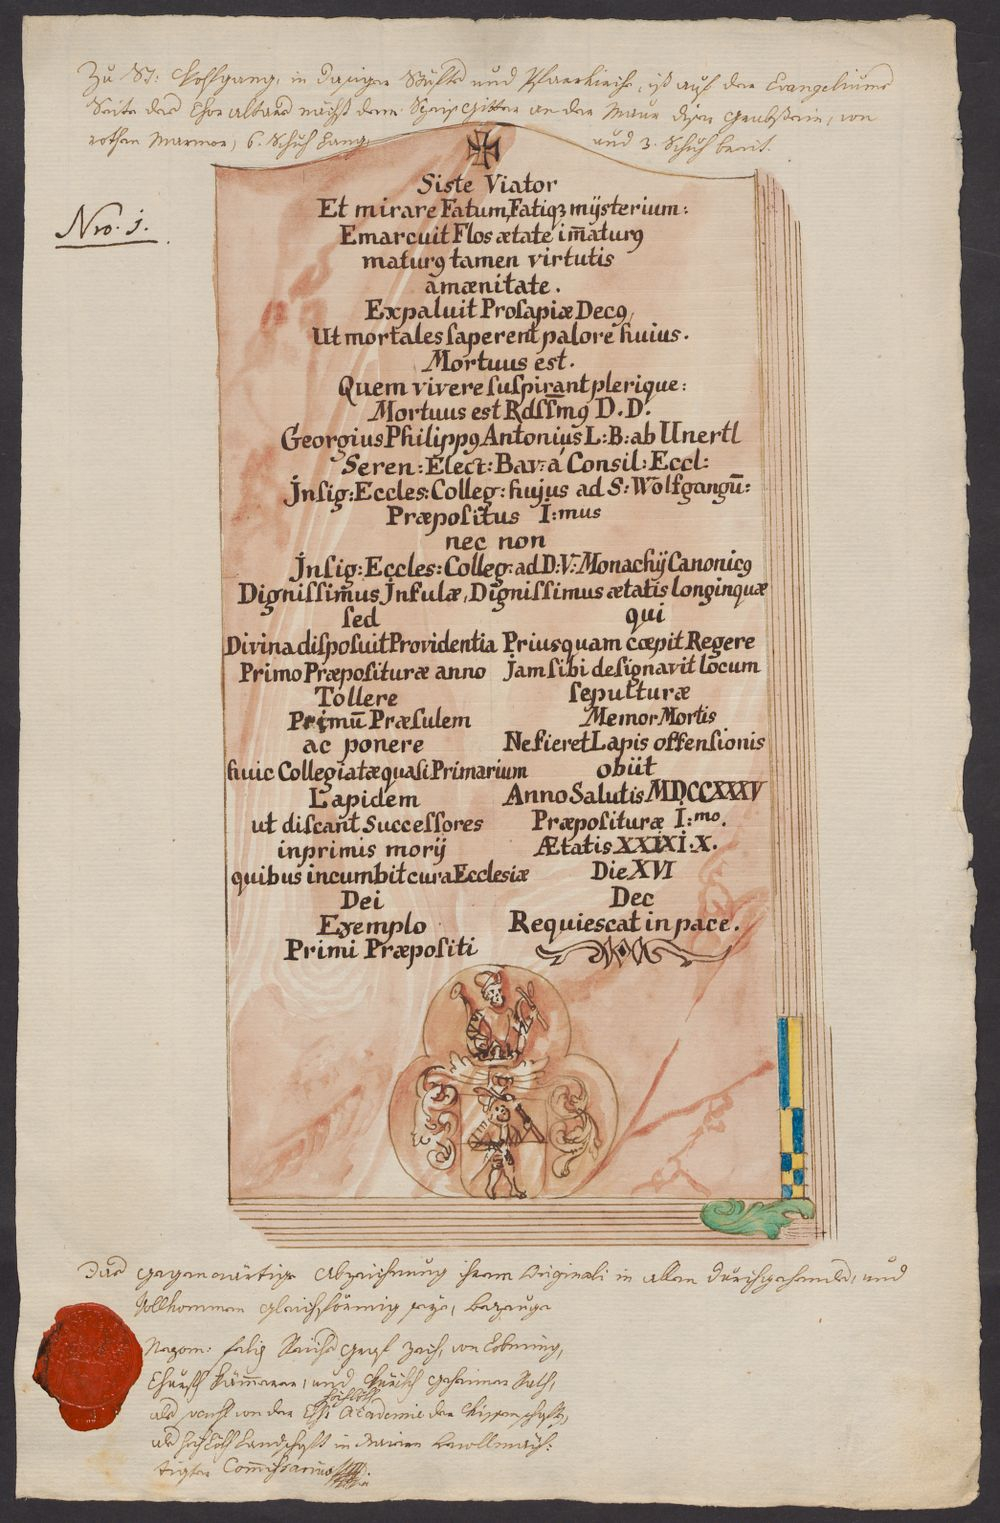 Zu St: Wolfgang, in dasiger Stüffts und Pfarrkirch, ist auf der Evangeliums
Seite des Chor altars nächst dem Speis Gitter an der Maur diser Grabstein, von
rothen Marmor, 6. Schuh lang, und 3. Schuh breit.
Nro. 1.
Siste Viator
Et mirare Fatum, Fatiqꝫ mÿsterium:
Emarcuit Flos ætate im̄aturꝯ
maturꝯ tamen virtutis
amænitate.
Expaluit Proſapiæ Decꝯ,
Ut mortales ſaperent palore huius.
Mortuus est.
Quem vivere ſuſpirant plerique:
Mortuus est Rdſſm̄ꝯ D.D.
Georgius Philippꝯ Antonius L:B: ab Unertl
Seren: Elect: Bav: á Consil: Eccl:
Jnſig: Eccles: Colleg: hujus ad S: Wolfgangū:
Præpoſitus I:mus
nec non
Jnſig: Eccles: Colleg: ad D:V: Monachÿ Canonicꝯ
Digniſſim̄us Jnfulæ, Digniſſimus ætatis longinquæ
ſed
Divina diſpoſuit Providentia
Primo Præpoſituræ anno
Tollere
Primū Præſulem
ac ponere
huic Collegiatæ quaſi Primarium
Lapidem
ut diſcant Succeſſores
inprimis morÿ
quibus incumbit cura Ecclesiæ
Dei
Exemplo
Primi Præpoſiti
qui
Priusquam cœpit Regere
Jam ſibi deſignavit locum
ſepulturæ
Memor Mortis
Ne fieret Lapis offenſionis
obiit
Anno Salutis MDCCXXXV
Præpoſituræ I:mo.
Ætatis XXIXI.X.
Die XVI
Dec
Requiescat in pace.
Das gegenwärtige Abzeichnung ihrem Originali in allen durchgehends, und
Vollkommen gleichförmig seye, bezeuge
Reichs Graf von
Churfl und Geheimer Rath,
als von der Academie der
als Landschafft in
Commissarius